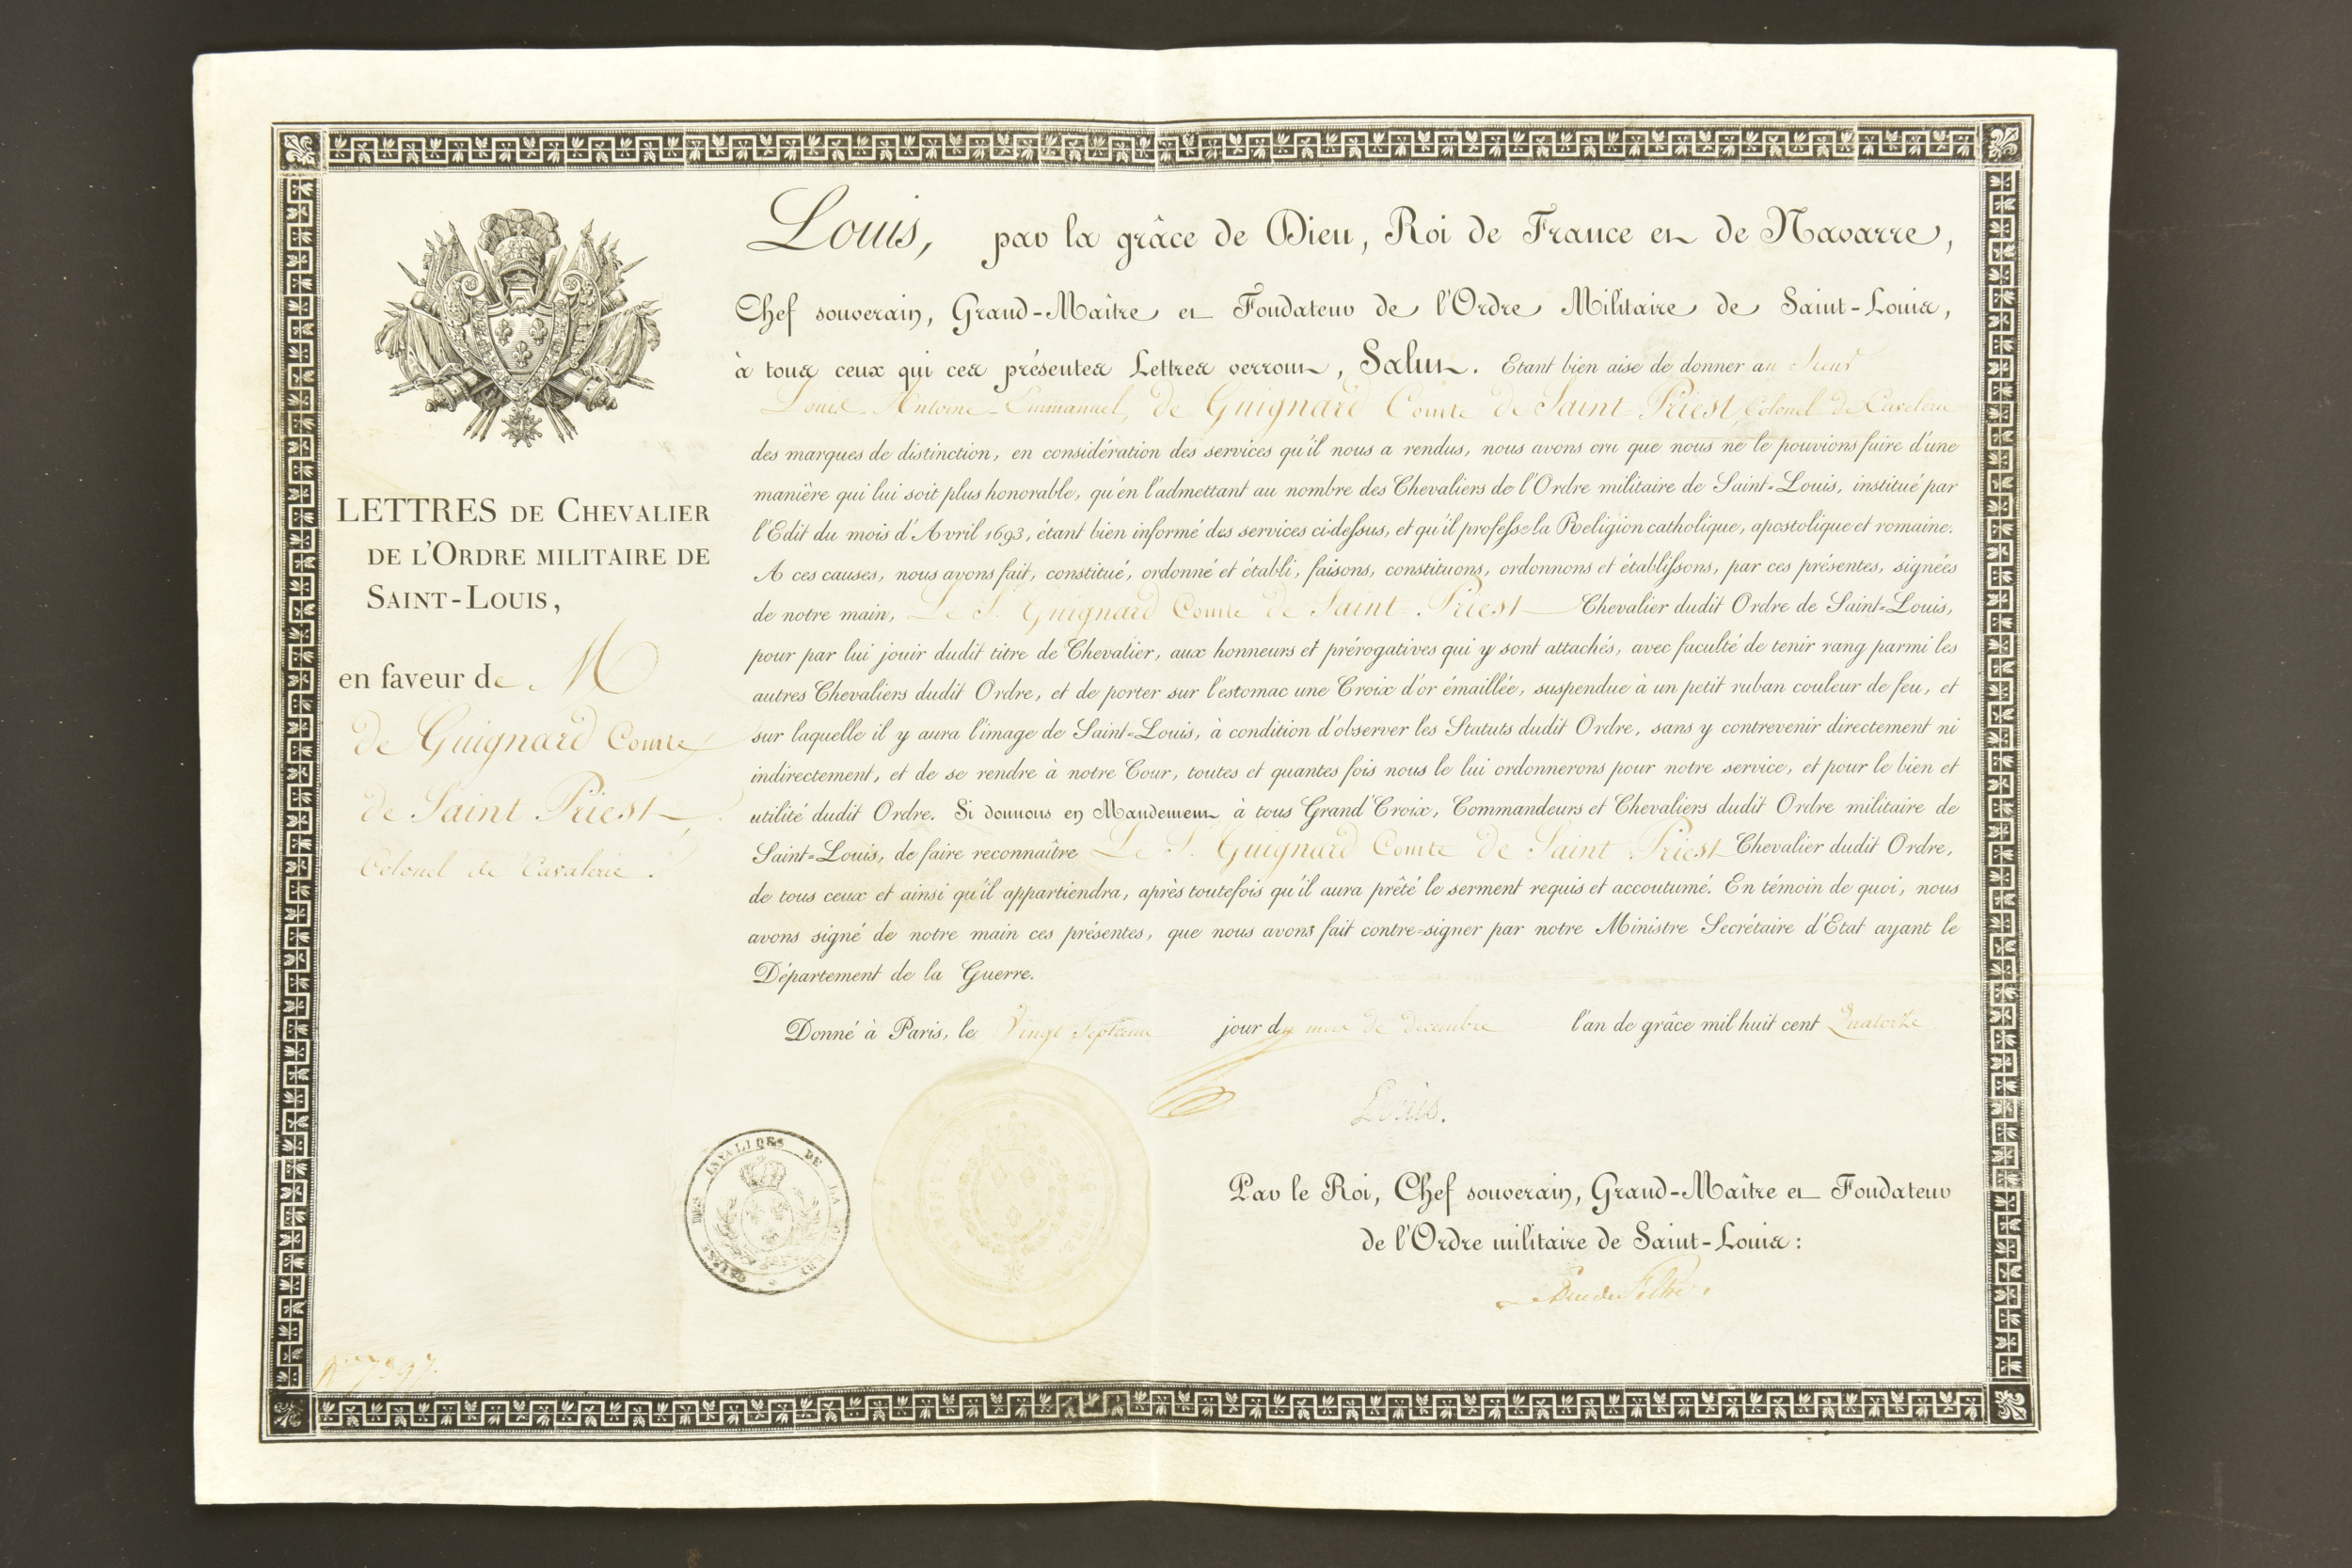 Louis, par la grâce de Dieu, Roi de France et de Navarre,
Chef souverain, Grand-Maître et Fondateur de l'Ordre Militaire de Saint-Louis,
à tous ceux qui ces présentes Lettres verront, Salut. Etant bien aise de donner au Sieur
Louis-Antoine-Emmanuel, de Guignard Comte de Saint-Priest, Colonel de Cavalerie
des marques de distinction, en considération des services qu'il nous a rendus, nous avons cru que nous ne le pouvions faire d'une
manière qui lui soit plus honorable, qu'en l'admettant au nombre des Chevaliers de l'Ordre militaire de Saint-Louis, institué par
l'Edit du mois d'Avril 1693, étant bien informé des services ci-dessus, et qu'il professe la Religion catholique, apostolique et romaine.
A ces causes, nous avons fait, constitué, ordonné et établi, faisons, constituons, ordonnons et établissons, par ces présentes, signées
de notre main, Le S. Guignard Comte de Saint-Priest Chevalier dudit Ordre de Saint-Louis,
pour par lui jouir dudit titre de Chevalier, aux honneurs et prérogatives qui y sont attachés, avec faculté de tenir rang parmi les
autres Chevaliers dudit Ordre, et de porter sur l'estomac une Croix d'or émaillée, suspendue à un petit ruban couleur de feu, et
sur laquelle il y aura l'image de Saint-Louis, à condition d'observer les Statuts dudit Ordre, sans y contrevenir directement ni
indirectement, et de se rendre à notre Cour, toutes et quantes fois nous le lui ordonnerons pour notre service, et pour le bien et
utilité dudit Ordre. Si donnons en Mandement à tous Grand'Croix, Commandeurs et Chevaliers dudit Ordre militaire de
Saint-Louis, de faire reconnaître Le S. Guignard Comte de Saint Priest Chevalier dudit Ordre,
de tous ceux et ainsi qu'il appartiendra, après toutefois qu'il aura prêté le serment requis et accoutumé. En témoin de quoi, nous
avons signé de notre main ces présentes, que nous avons fait contre-signer par notre Ministre Secrétaire d'Etat ayant le
Département de la Guerre.
Donné à Paris, le Vingt Septieme jour du mois de decembre l'an de grâce mil huit cent Quatorze
Louis.
Par le Roi, Chef souverain, Grand-Maître et Fondateur
de l'Ordre militaire de Saint-Louis:
Duc de Feltre
LETTRES DE CHEVALIER
DE L'ORDRE MILITAIRE DE
SAINT-LOUIS,
en faveur de M
de Guignard Comte
de Saint Priest
Colonel de Cavalerie.
CAISSE DES INVALIDES DE LA GUERRE